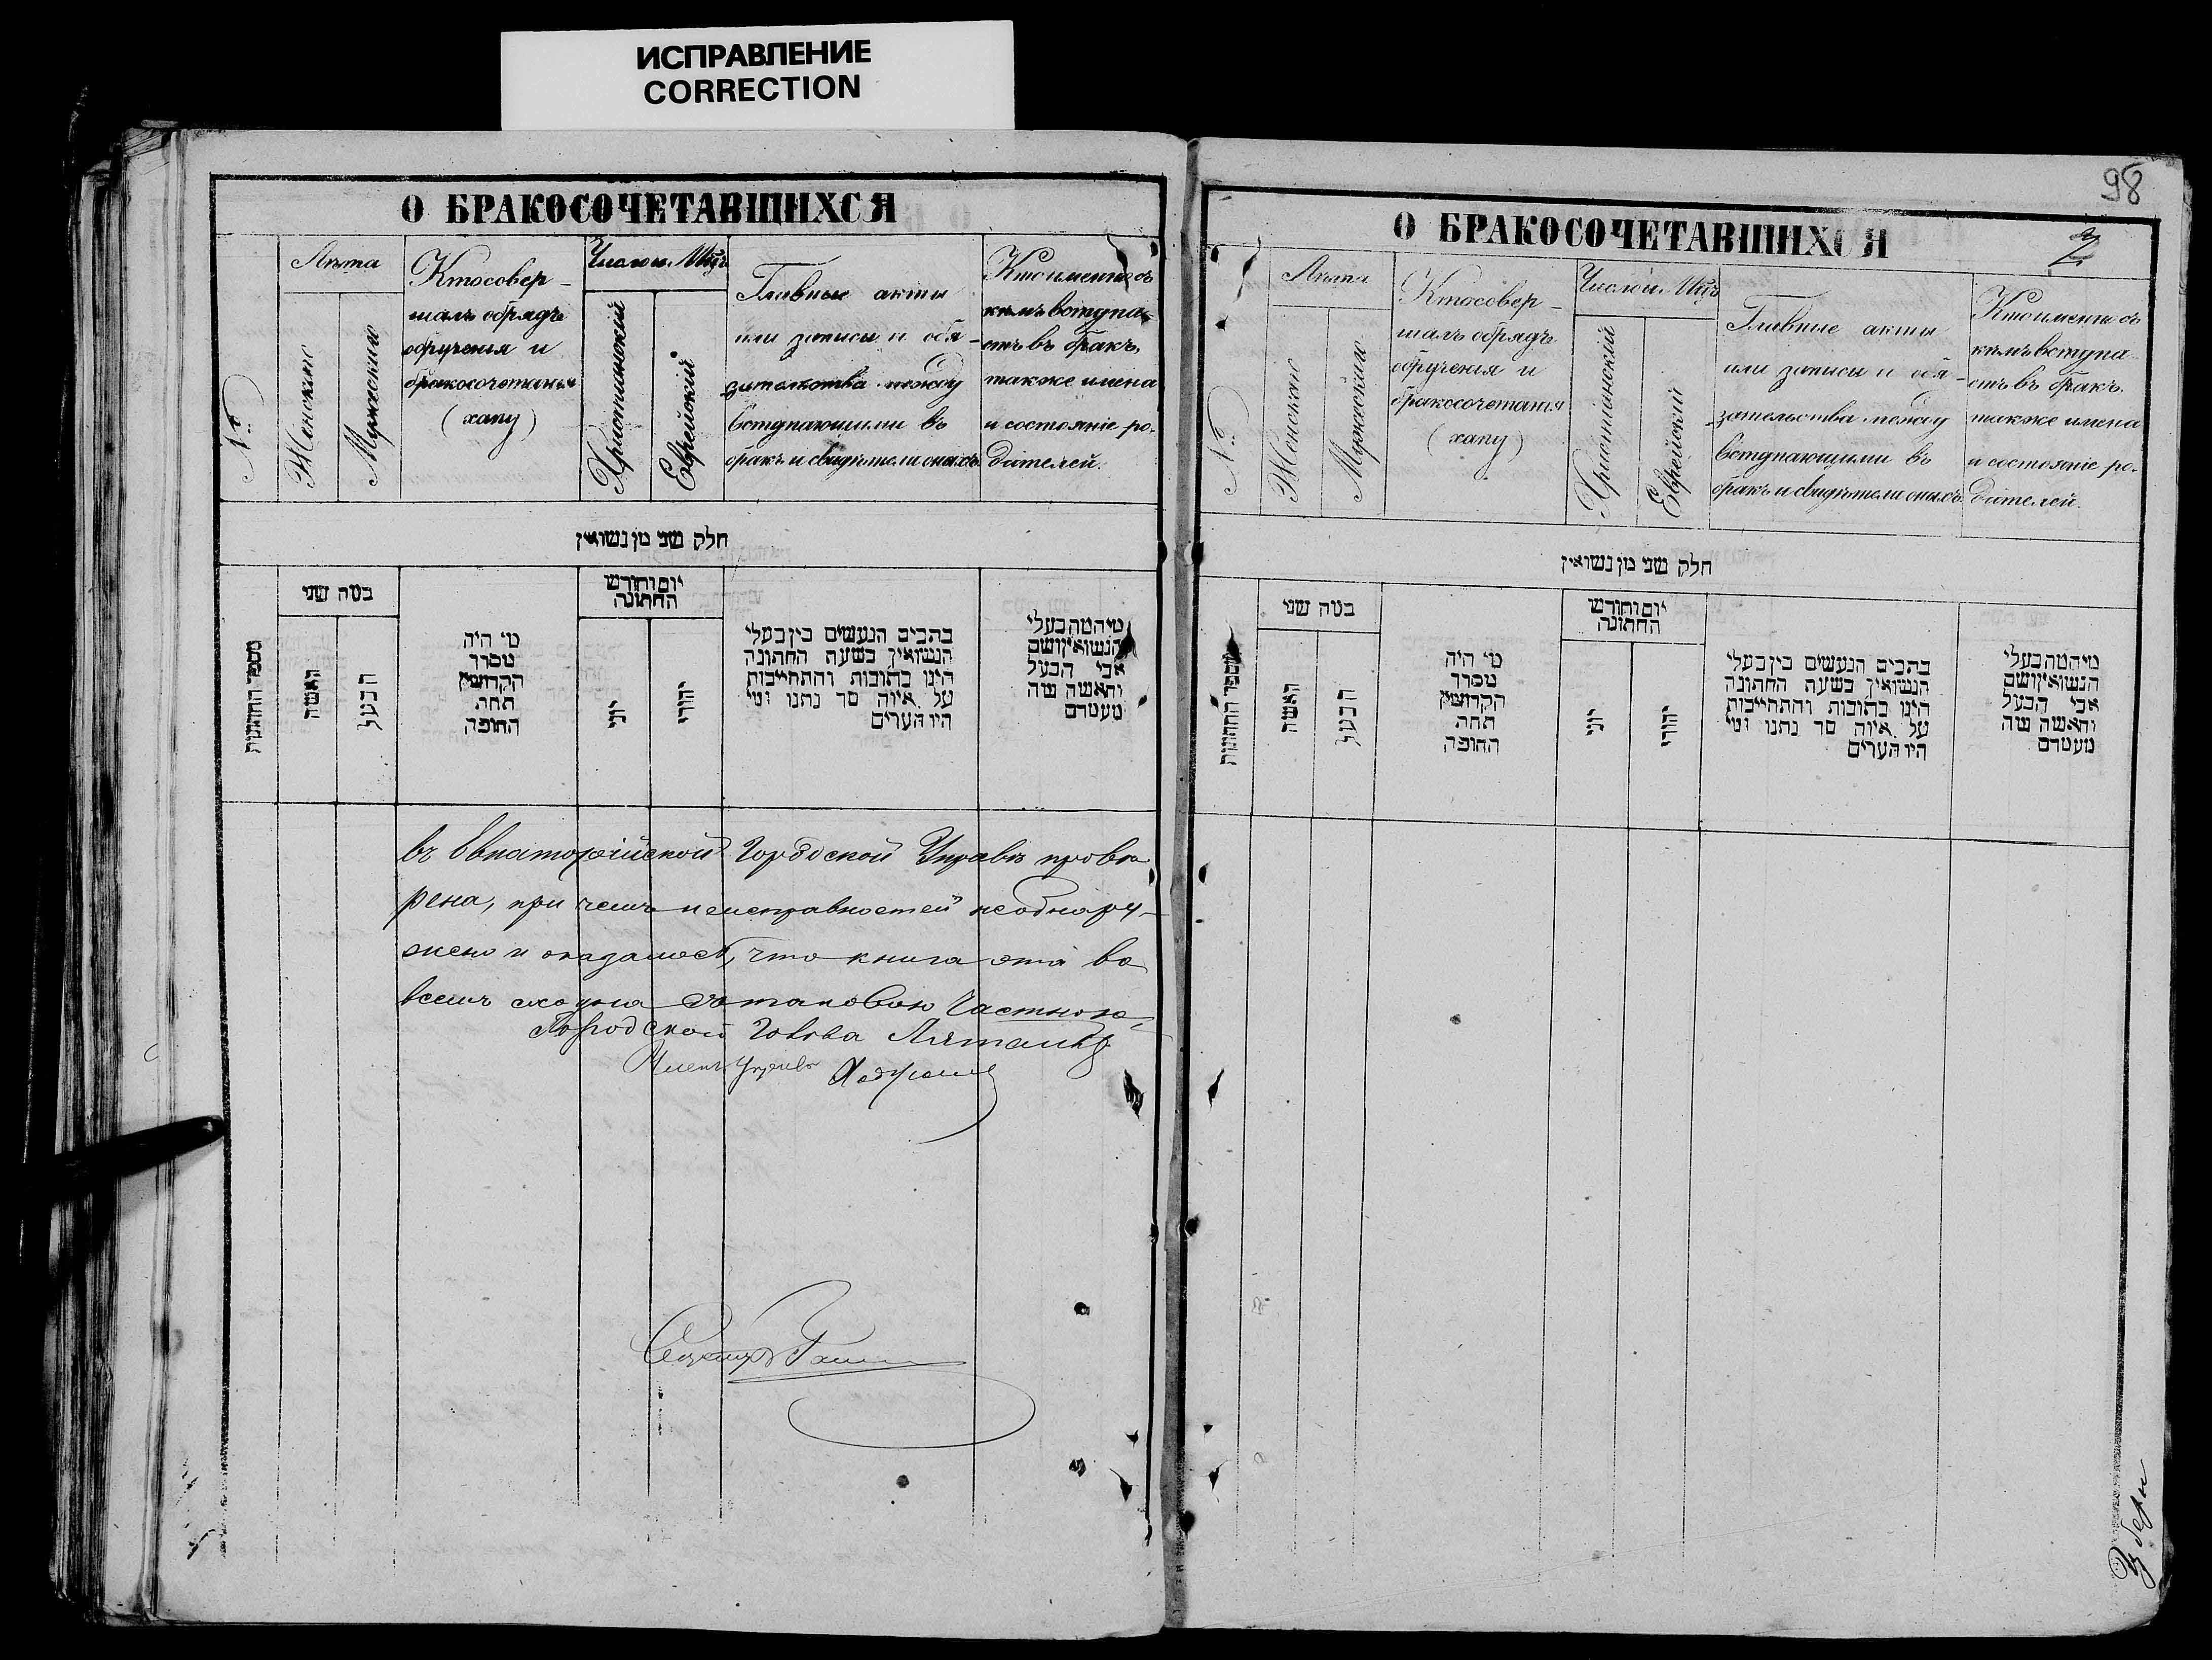 ИСПРАВЛЕНИЕ
CORRECTION
О БРАКОСОЧЕТАВШИХСЯ
№
Лѣта
Женскаго
Мужескаго
Кто совер-
шалъ обрядъ
обрученія и
бракосочетанія
(хапу)
Число и Мѣсц
Христіанскій
Еврейскій
Главные акты
или записи и обя-
зательства между
вступающими въ
бракъ и свидѣтели оныхъ
Кто именно съ
кѣмъ вступа-
етъ въ бракъ,
также имена
и состояніе ро-
дителей.
חלק שני מן נשואין
מספר החתונות
במה שני
האשה
הבעל
מי היה
מסדר
הקדושין
תחת
החופה
יום וחודש
החתונה
יוני
יהודי
כתבים הנעשים בין בעלי
הנשואין בשעת החתונה
היינו כתובות והתחייבות
על איזה סך נתנו ומי
היו העדים
מי המה בעלי
הנשואין ושם
אבי הבעל
והאשה מה
מעמדם
въ Евпаторійской Городской Управѣ провѣ-
рена, при чемъ неисправностей необнару-
жено и оказалось, что книга эта во
всемъ сходна съ таковою частною,
Городской Голова
Членъ Управы
98
О БРАКОСОЧЕТАВШИХСЯ
№
Лѣта
Женскаго
Мужескаго
Кто совер-
шалъ обрядъ
обрученія и
бракосочетанія
(хапу)
Число и Мѣсц
Христіанскій
Еврейскій
Главные акты
или записи и обя-
зательства между
вступающими въ
бракъ и свидѣтели оныхъ
Кто именно съ
кѣмъ вступа-
етъ въ бракъ.
также имена
и состояніе ро-
дителей.
חלק שני מן נשואין
מספר החתונות
במה שני
האשה
הבעל
מי היה
מסדר
הקדושין
תחת
החופה
יום וחודש
החתונה
יוני
יהודי
כתבים הנעשים בין בעלי
הנשואין בשעת החתונה
היינו כתובות והתחייבות
על איזה סך נתנו ומי
היו העדים
מי המה בעלי
הנשואין ושם
אבי הבעל
והאשה מה
מעמדם